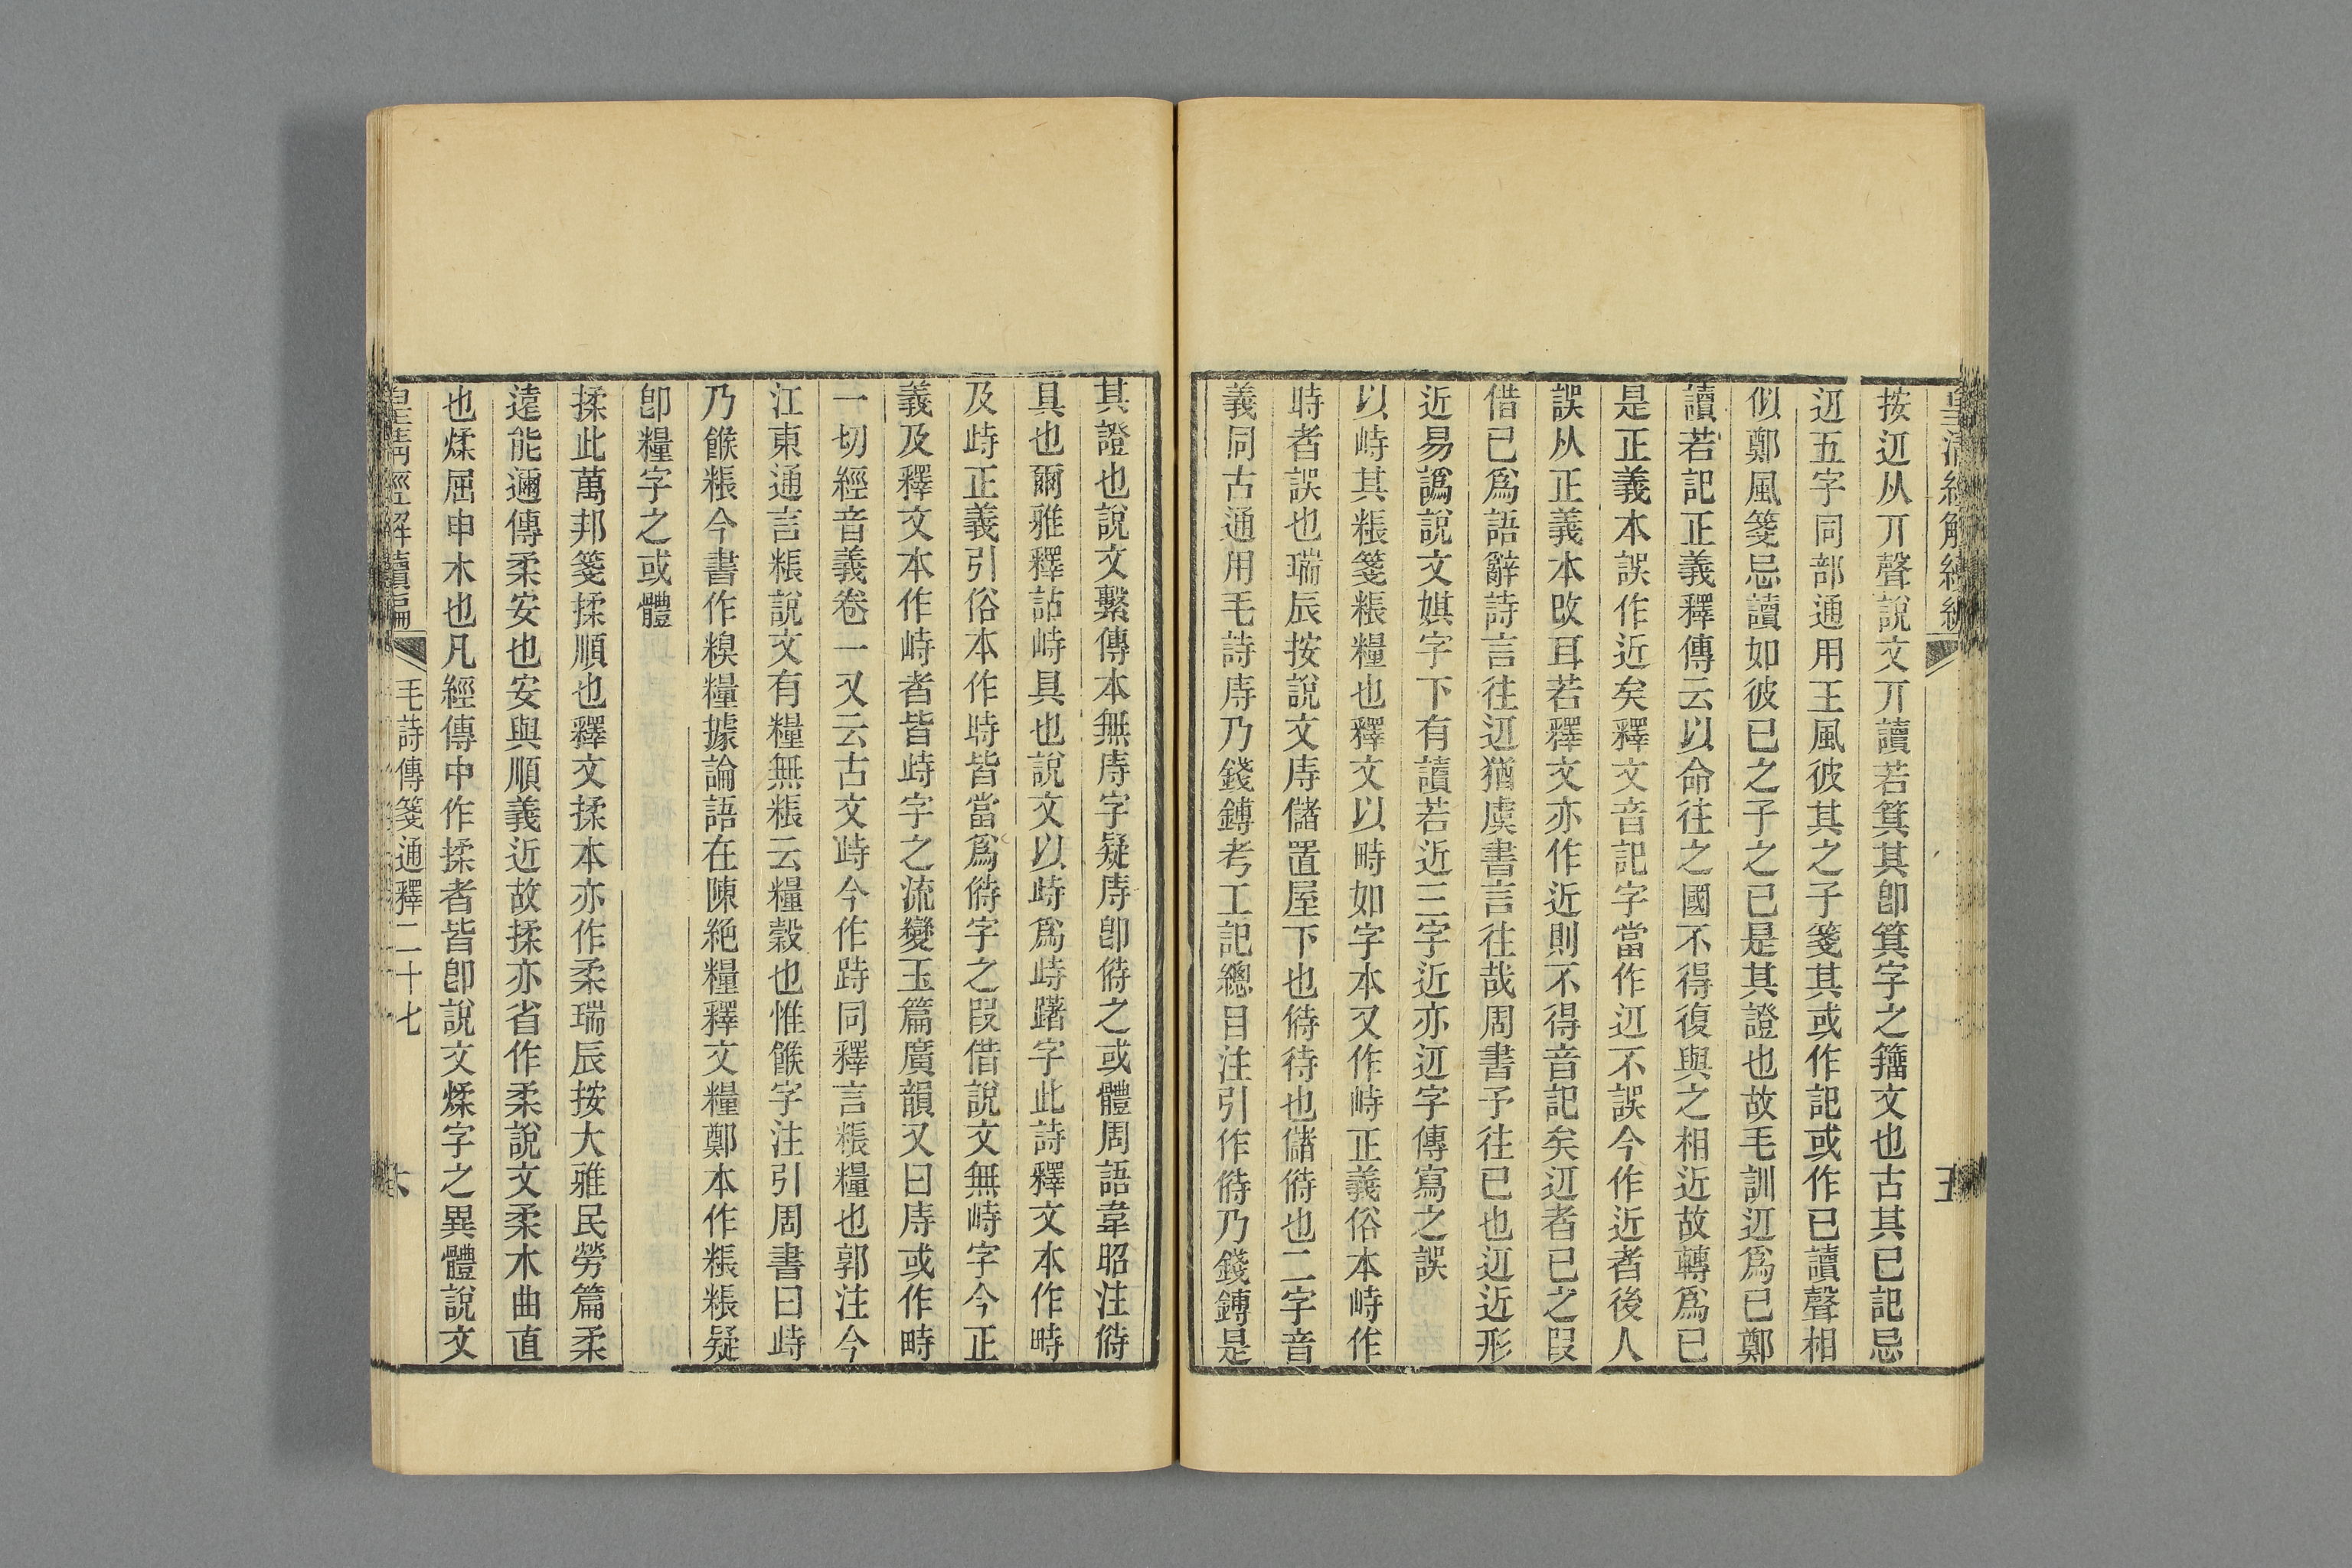 皇清經解續編
五
按䢋从丌聲說文丌讀若箕其卽箕字之籀文也古其已記忌
䢋五字同部通用王風彼其之子箋其或作記或作已讀聲相
似鄭風箋忌讀如彼已之子之已是其證也故毛訓䢋爲已鄭
讀若記正義釋傳云以命往之國不得復與之相近故轉爲已
是正義本誤作近矣釋文音記字當作䢋不誤今作近者後人
誤从正義本改耳若釋文亦作近則不得音記矣䢋者已之叚
借已爲語辭詩言往䢋猶虞書言往哉周書予往已也䢋近形
近易譌說文娸字下有讀若近三字近亦䢋字傳寫之誤
以峙其粻箋粻糧也釋文以畤如字本又作峙正義俗本峙作
時者誤也瑞辰按說文庤儲置屋下也偫待也儲偫也二字音
義同古通用毛詩庤乃錢鎛考工記總目注引作偫乃錢鎛是
其證也說文繫傳本無庤字疑庤卽偫之或體周語韋昭注偫
具也爾雅釋詁峙具也說文以歭爲峙躇字此詩釋文本作畤
及歭正義引俗本作時皆當爲偫字之叚借說文無峙字今正
義及釋文本作峙者皆歭字之流變玉篇廣韻又曰庤或作畤
一切經音義卷一又云古文歭今作跱同釋言粻糧也郭注今
江東通言粻說文有糧無粻云糧穀也惟餱字注引周書曰歭
乃餱粻今書作糗糧據論語在陳絶糧釋文糧鄭本作粻粻疑
卽糧字之或體
揉此萬邦箋揉順也釋文揉本亦作柔瑞辰按大雅民勞篇柔
遠能邇傳柔安也安與順義近故揉亦省作柔說文柔木曲直
也煣屈申木也凡經傳中作揉者皆卽說文煣字之異體說文
皇清經解續編
毛詩傳箋通釋二十七
六